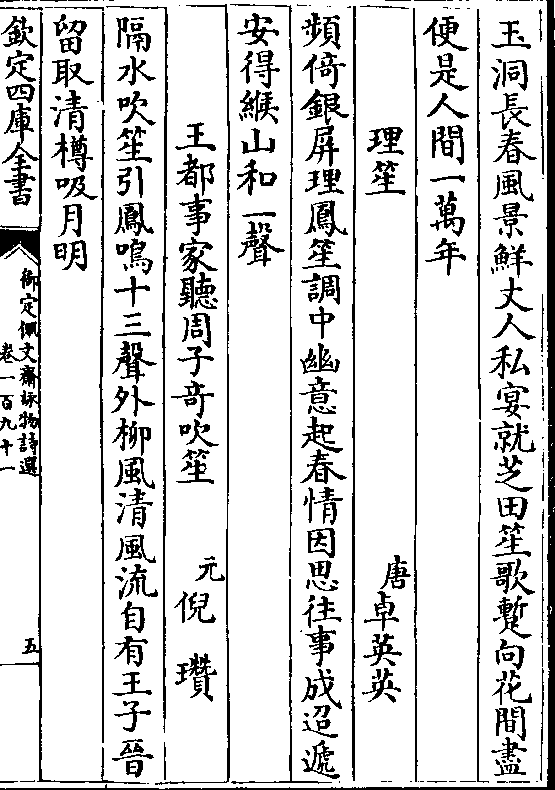 玉洞長春風景鮮丈人私宴就芝田笙歌蹔向花間盡
便是人間一萬年
理笙　唐卓英英
頻倚銀屏理鳳笙調中幽意起春情因思徃事成迢遞
安得緱山和一聲
王都事家聽周子竒吹笙　元倪瓚
隔水吹笙引鳳鳴十三聲外柳風清風流自有王子晉
留取清樽吸月明
欽定四庫全書
御定佩文齋詠物詩選
卷一百九十一
五